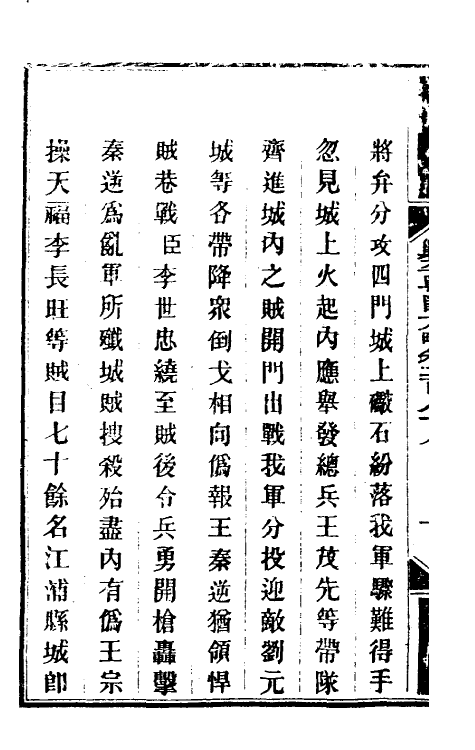 將弁分攻四門城上礮石紛落我軍驟難得手
忽見城上火起內應舉發總兵王茂先等帶隊
齊進城內之賊開門出戰我軍分投迎敵劉元
城等各帶降眾倒戈相向偽報王秦逆猶領悍
賊巷戰臣李世忠繞至賊後令兵勇開槍轟擊
秦逆爲亂軍所殲城賊搜殺殆盡內有僞王宗
操天福李長旺等賊目七十餘名江浦縣城卽